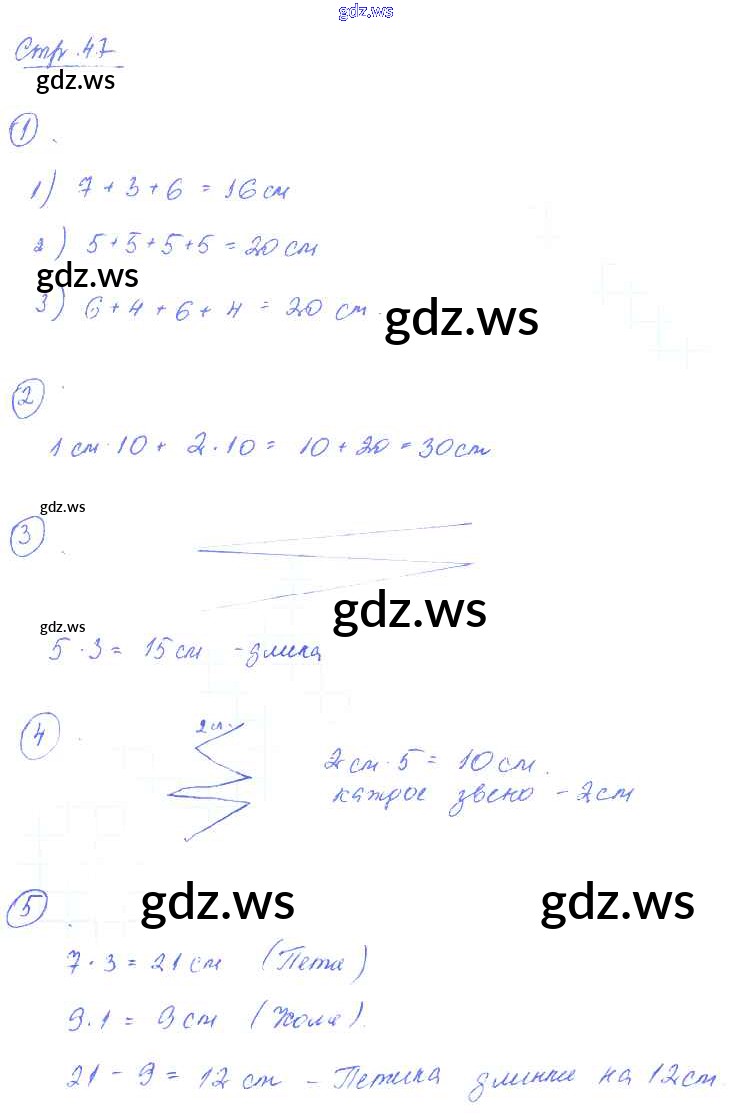 gdz.ws
Стр. 47
gdz.ws
1.
1) 7 + 3 + 6 = 16 см
2) 5 + 5 + 5 + 5 = 20 см
gdz.ws
3) 6 + 4 + 6 + 4 = 20 см.
gdz.ws
2.
1 см · 10 + 2 · 10 = 10 + 20 = 30 см
gdz.ws
3.
gdz.ws
gdz.ws
5 · 3 = 15 см - длина
4.
2 см.
2 см · 5 = 10 см.
каждое звено - 2 см
gdz.ws gdz.ws
5.
7 · 3 = 21 см (Петя)
9 · 1 = 9 см (Коля).
21 - 9 = 12 см - Петина длиннее на 12 см.